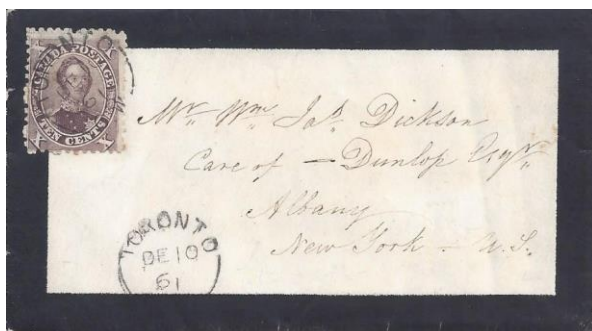 CANADA POSTAGE
TEN CENTS
TORONTO
Mr. Wm. Jas. Dickson
Care of — Dunlop Esqr.
Albany
New York - U.S.
TORONTO
DE 10
61